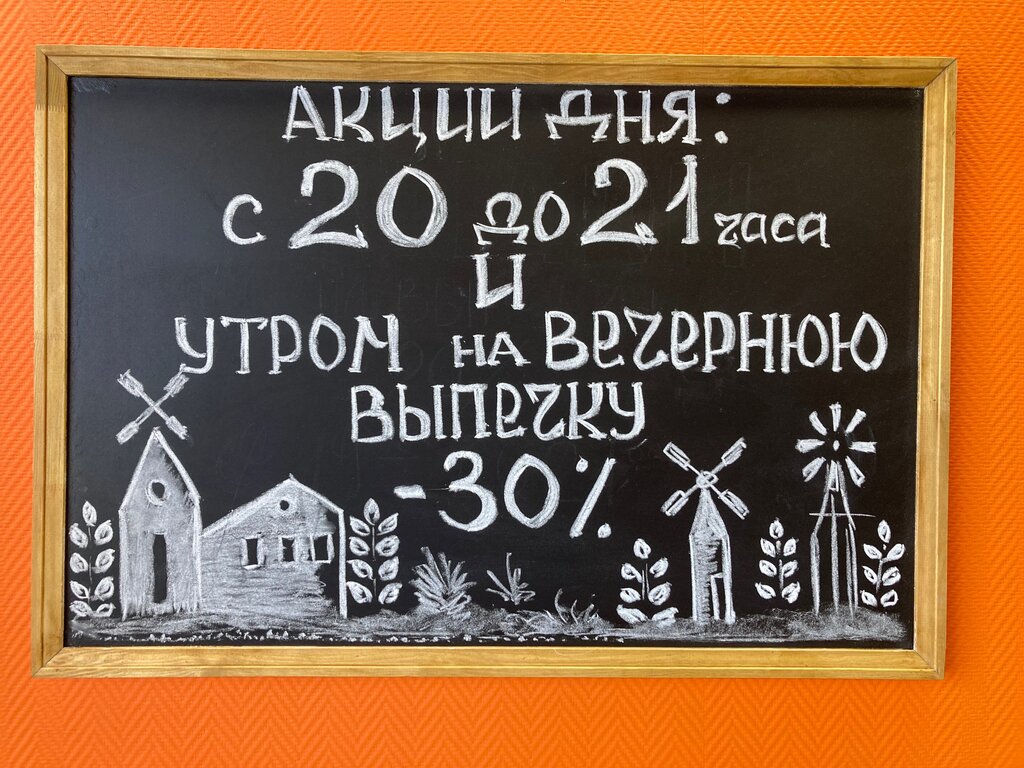 АКЦИИ ДНЯ:
с 20 до 21 часа
И
УТРОМ НА ВЕЧЕРНЮЮ
ВЫПЕЧКУ
-30%